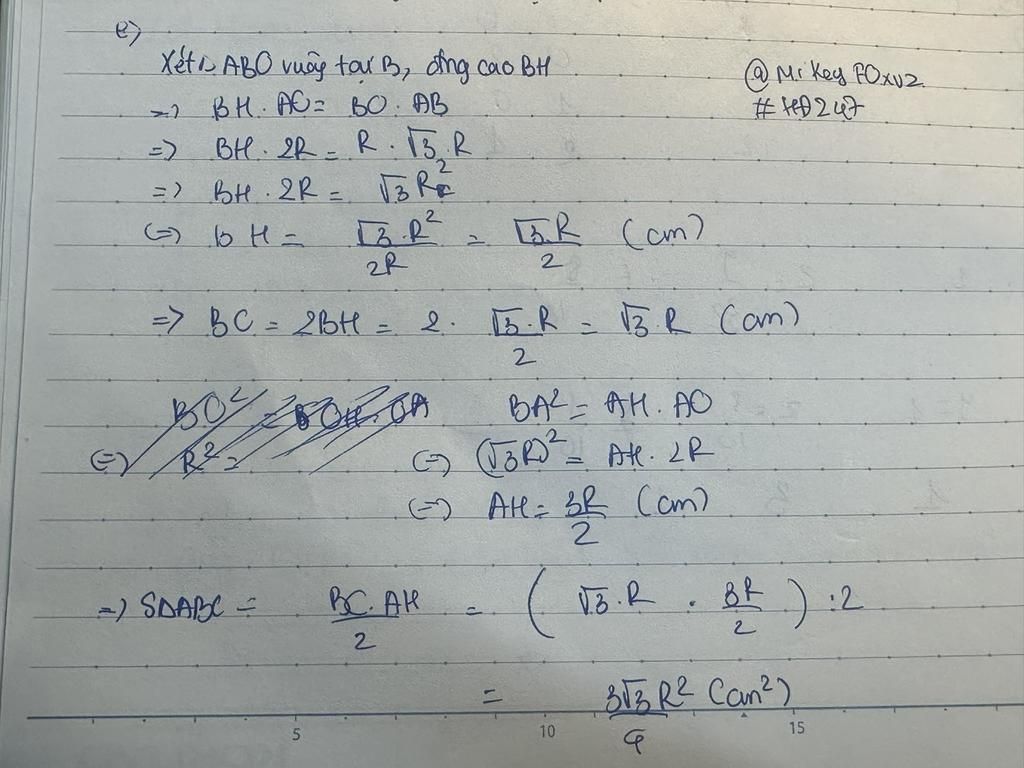 e)
Xét △ ABO vuông tại B, đng cao BH
@Mr Key FOxv2
#HĐ247
=> BH . AO = BO . AB
=> BH . 2R = R . √3 . R
=> BH . 2R = √3 R²
<=> BH = √3.R²/2R = √3.R/2 (cm)
=> BC = 2BH = 2 . √3.R/2 = √3.R (cm)
BO² = OH.OA BA² = AH . AO
<=> R² = <=> (√3R)² = AH . 2R
<=> AH = 3R/2 (cm)
=> SΔABC = BC.AH/2 = (√3.R . 3R/2) : 2
= 3√3R²/4 (cm²)
5 10 15